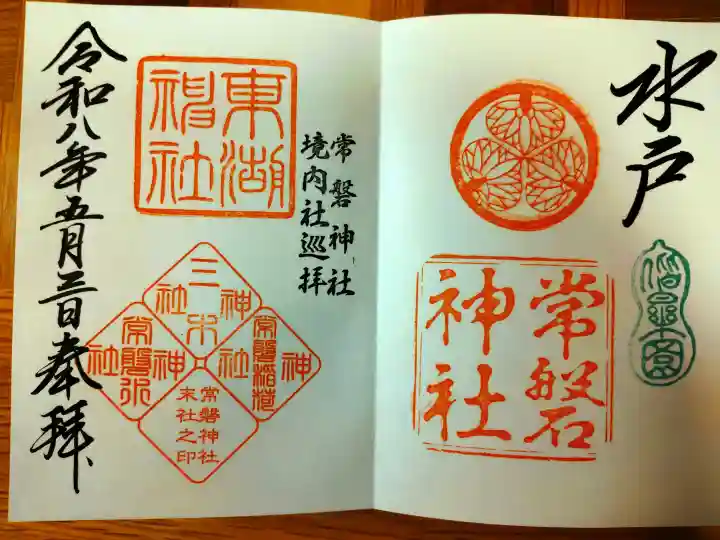 水戸
偕楽園
常磐
神社
常磐神社
境内社巡拝
東湖
神社
三木
神社
常磐稲荷
神社
常磐
神社
常磐神社
末社之印
令和八年五月三日奉拝